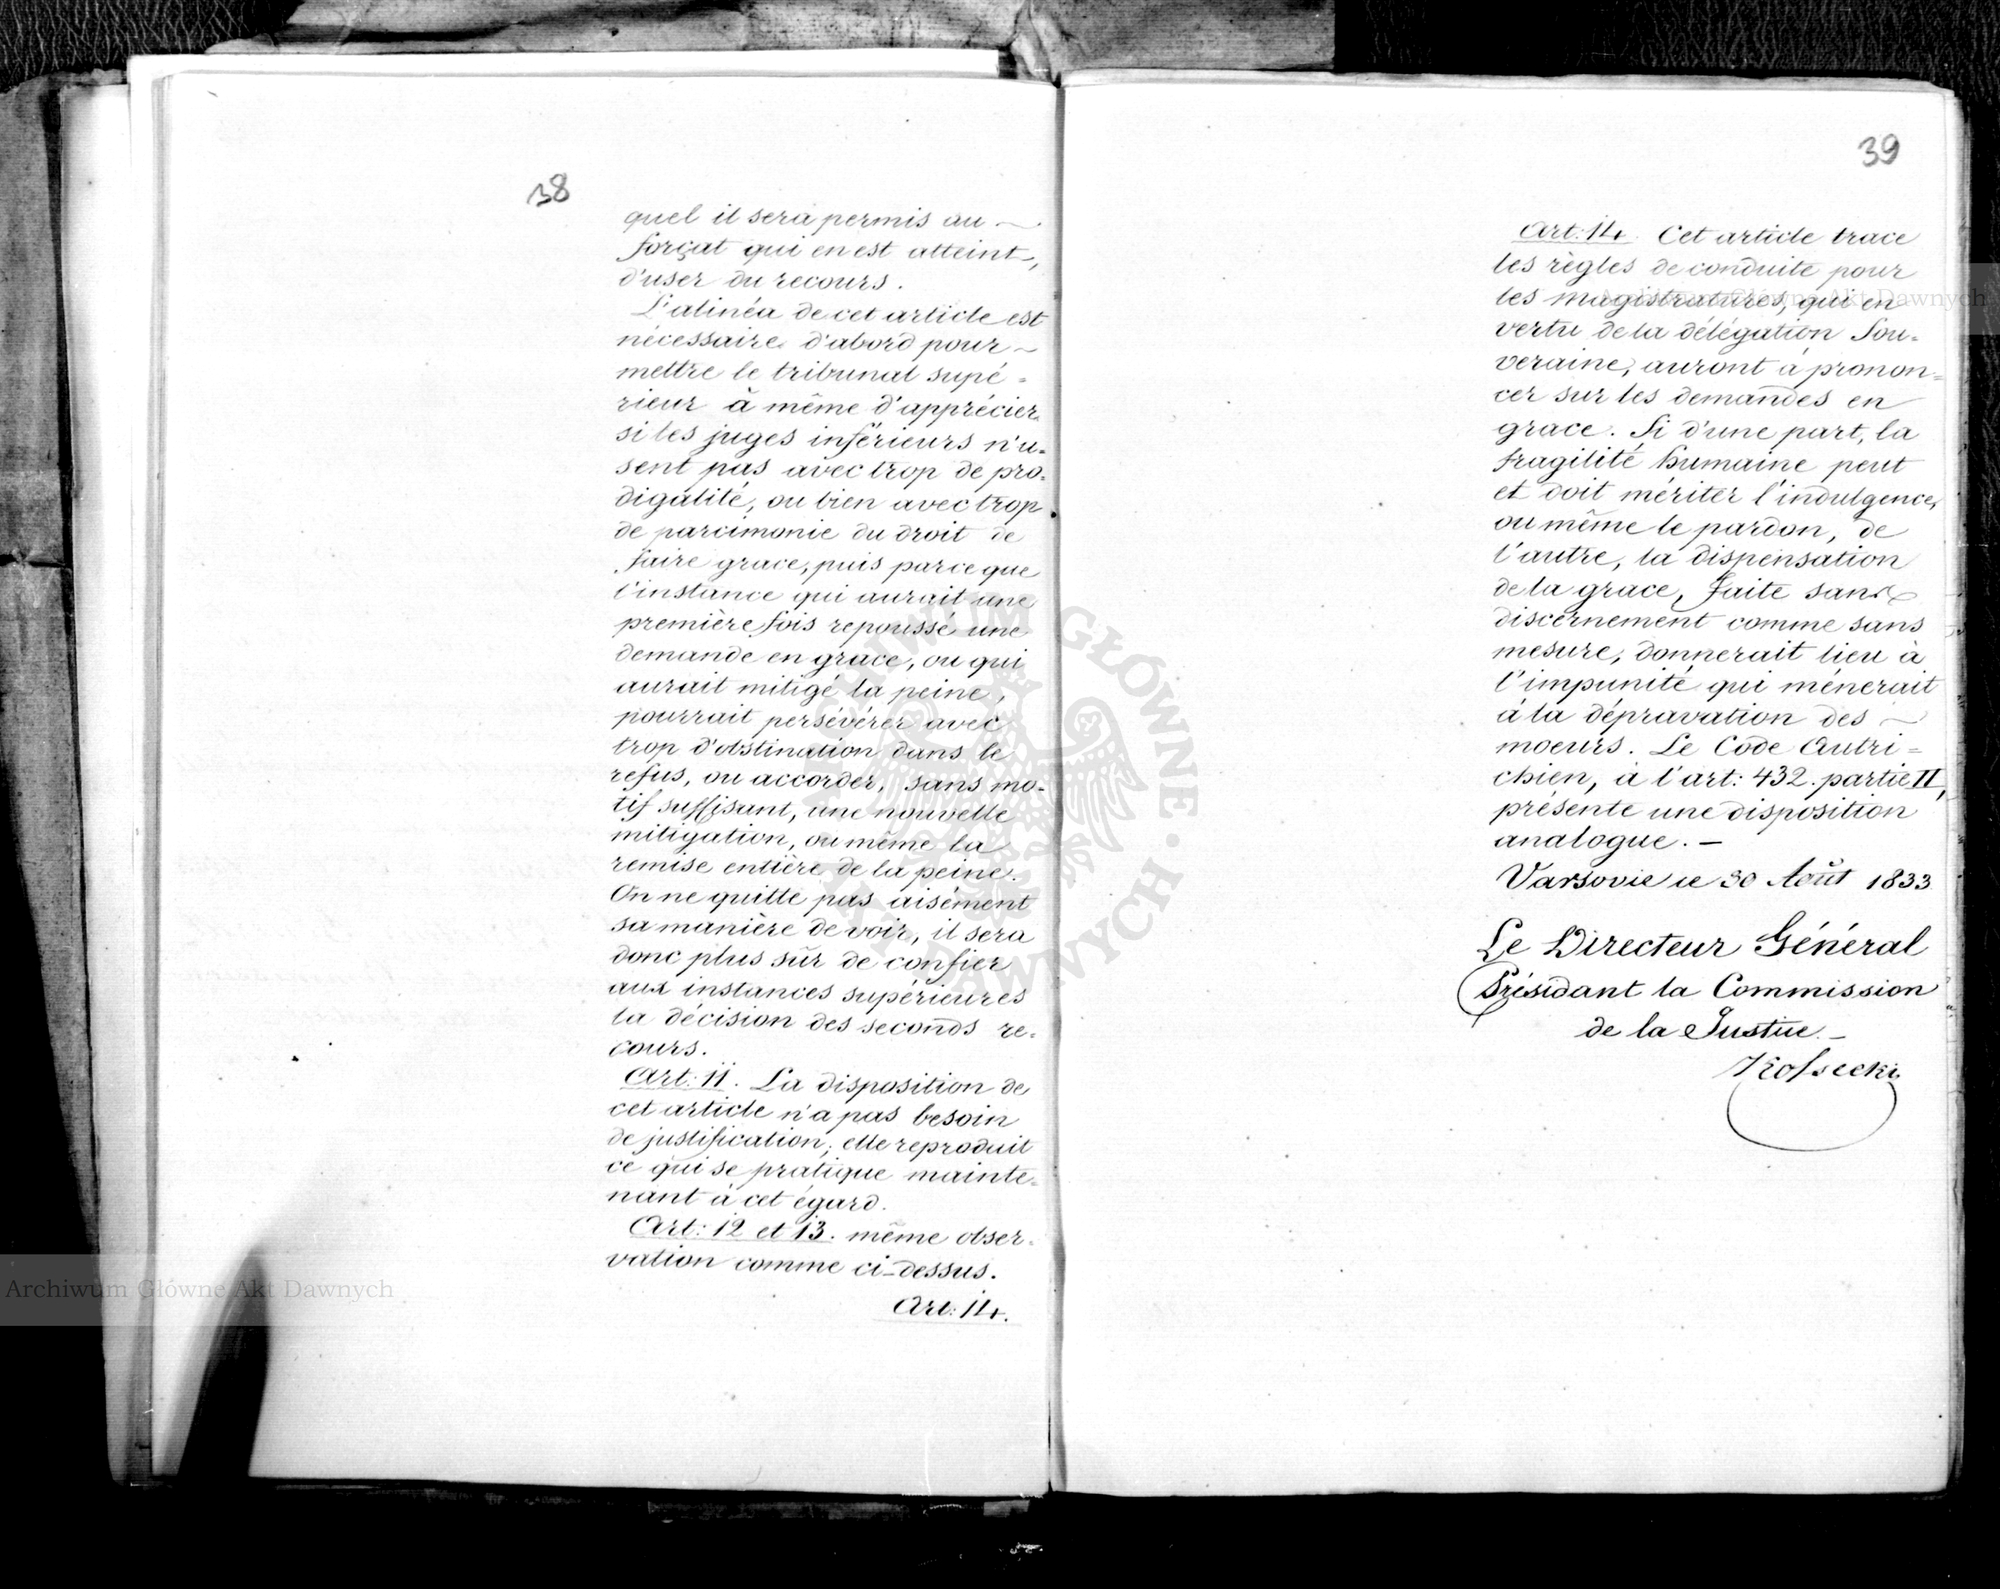 38
quel il sera permis au
forçat qui en est atteint,
d'user du recours.
L'alinéa de cet article est
nécessaire d'abord pour
mettre le tribunal supé=
rieur à même d'apprécier
si les juges inférieurs n'u=
sent pas avec trop de pro=
digalité, ou bien avec trop
de parcimonie du droit de
faire grace, puis parce que
l'instance qui aurait une
première fois repoussé une
demande en grace, ou qui
aurait mitigé la peine,
pourrait persévérer avec
trop d'obstination dans le
refus, ou accorder, sans mo=
tif suffisant, une nouvelle
mitigation, ou même la
remise entière de la peine.
On ne quitte pas aisément
sa manière de voir, il sera
donc plus sûr de confier
aux instances supérieures
la décision des seconds re=
cours.
Art: 11. La disposition de
cet article n'a pas besoin
de justification; elle reproduit
ce qui se pratique mainte=
nant à cet égard.
Art: 12 et 13. même obser=
vation comme ci-dessus.
Art: 14.
39
Art: 14. Cet article trace
les règles de conduite pour
les magistratures, qui en
vertu de la délégation Sou=
veraine, auront à pronon=
cer sur les demandes en
grace. Si d'une part, la
fragilité humaine peut
et doit mériter l'indulgence,
ou même le pardon, de
l'autre, la dispensation
de la grace, faite sans
discernement comme sans
mesure, donnerait lieu à
l'impunité qui ménerait
à la dépravation des
moeurs. Le Code Autri=
chien, à l'art: 432. partie II,
présente une disposition
analogue. —
Varsovie le 30 Août 1833
Le Directeur Général
Présidant la Commission
de la Justice. —
Kossecki
Archiwum Główne Akt Dawnych
Archiwum Główne Akt Dawnych
ARCHIWUM GŁÓWNE · AKT DAWNYCH ·